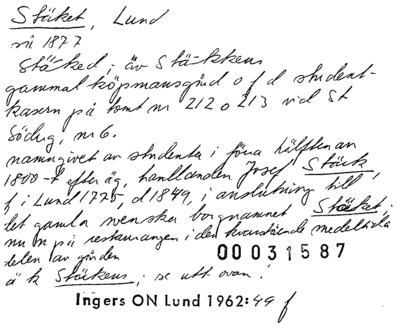 Stäket, Lund
si 1877
stäked; äv Stäkkens
gammal köpmansgård o f d student-
kasern på tomt nr 212 o 213 vid St
Söderg, nr 6.
namngivet av studenter i förra hälften av
1800-t efter äg, handlanden Josef Stäck,
f i Lund 1775, d 1849, i anslutning till
det gamla svenska borgnamnet Stäket;
nu n på restaurangen i den kvarstående medeltida
delen av gården
ä k Stäkens; se utt ovan!
00031587
Ingers ON Lund 1962:49 f